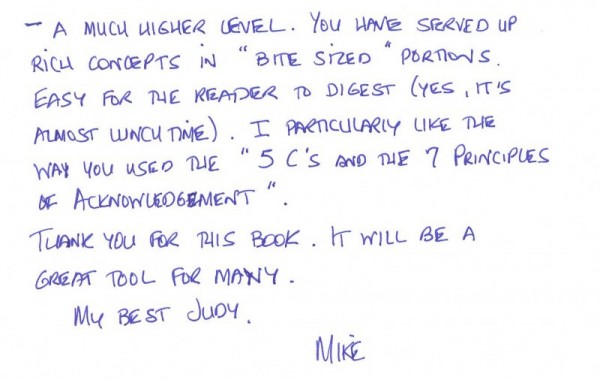 - A MUCH HIGHER LEVEL. YOU HAVE SERVED UP
RICH CONCEPTS IN "BITE SIZED" PORTIONS.
EASY FOR THE READER TO DIGEST (YES, IT'S
ALMOST LUNCH TIME). I PARTICULARLY LIKE THE
WAY YOU USED THE "5 C'S AND THE 7 PRINCIPLES
OF ACKNOWLEDGEMENT".
THANK YOU FOR THIS BOOK. IT WILL BE A
GREAT TOOL FOR MANY.
MY BEST JUDY.
MIKE